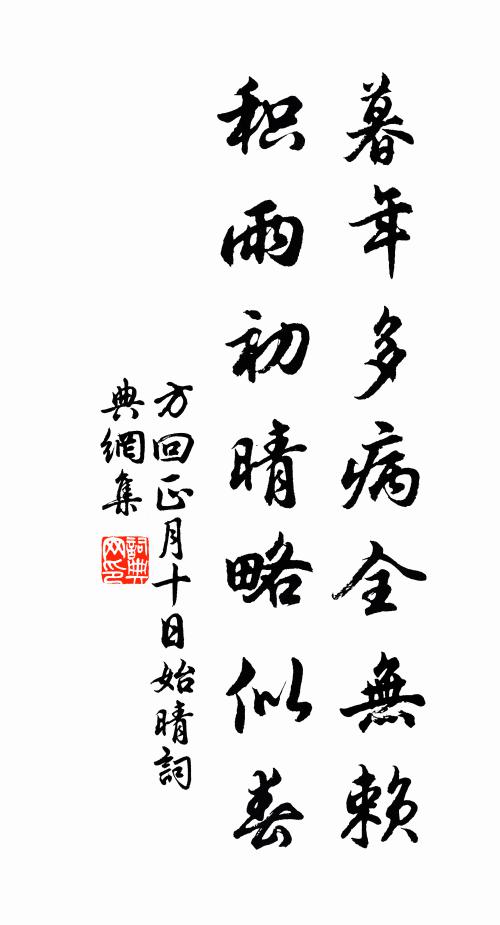 暮年多病全無賴
积雨初晴略似春
方回正月十日始晴詞
典網集
詞典
网印